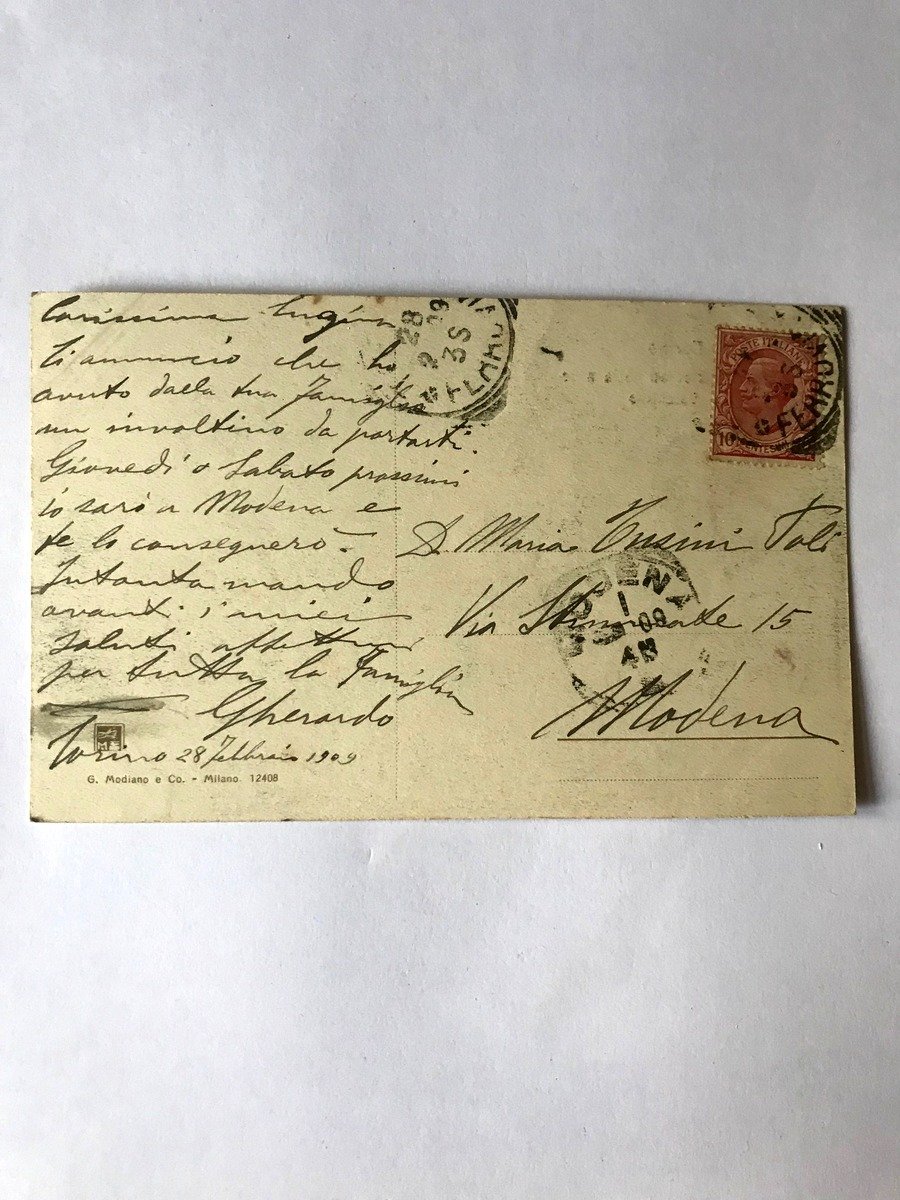 Carissima
ti annuncio che ho
avuto dalla tua Famiglia
un involtino da portarti.
Giovedì o Sabato prossimi
io sarò a Modena e
te lo consegnerò.
Intanto mando
avanti i miei
saluti affettuosi
per tutta la Famiglia
Gherardo
Torino 28 Febbraio 1909
G. Modiano e Co. - Milano. 12408
28
2
3S
FERRO
POSTE ITALIANE
10
FERRO
D. Maria Tusini
Via Stimmate 15
Modena
MODENA
1
09